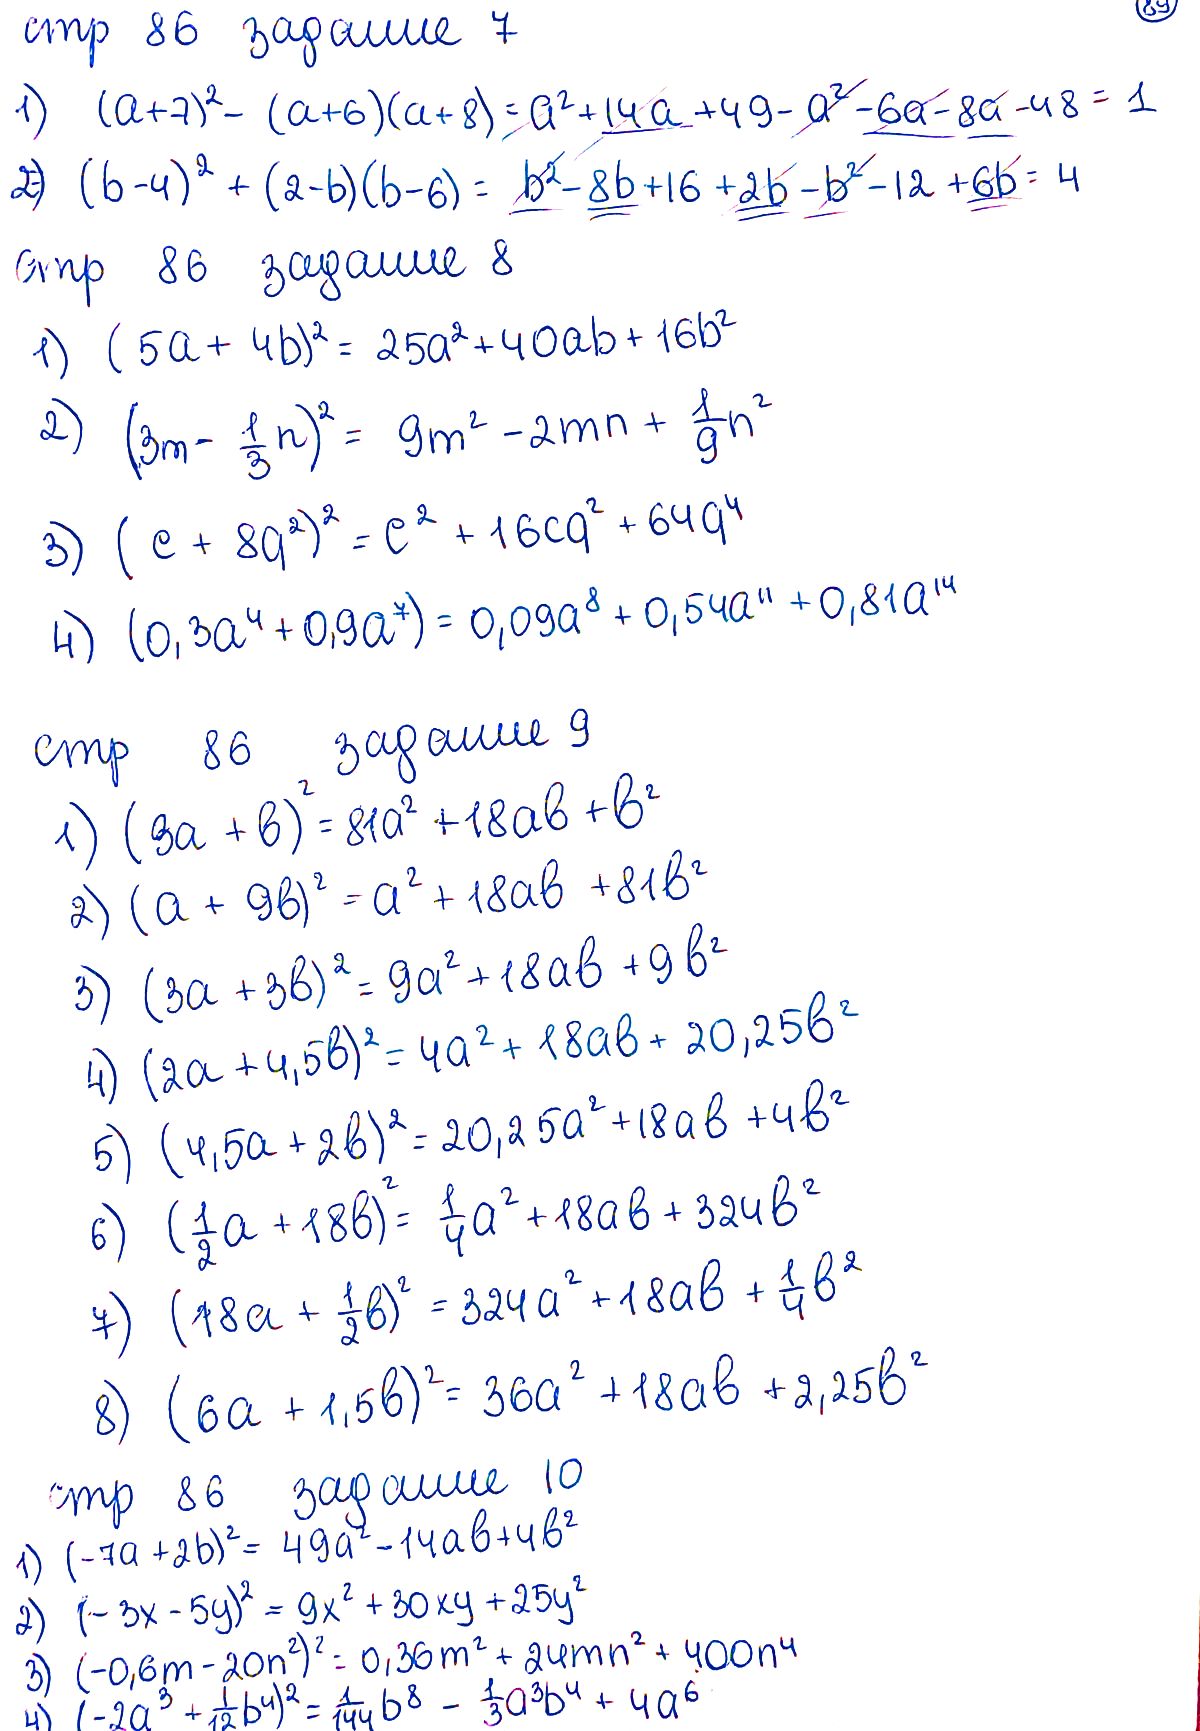 89
стр 86 задание 7
1) (a+7)² - (a+6)(a+8) = a² + 14a + 49 - a² - 6a - 8a - 48 = 1
2) (b-4)² + (2-b)(b-6) = b² - 8b + 16 + 2b - b² - 12 + 6b = 4
стр 86 задание 8
1) (5a + 4b)² = 25a² + 40ab + 16b²
2) (3m - 1/3 n)² = 9m² - 2mn + 1/9 n²
3) (c + 8q²)² = c² + 16cq² + 64q⁴
4) (0,3a⁴ + 0,9a⁷) = 0,09a⁸ + 0,54a¹¹ + 0,81a¹⁴
стр 86 задание 9
1) (9a + b)² = 81a² + 18ab + b²
2) (a + 9b)² = a² + 18ab + 81b²
3) (3a + 3b)² = 9a² + 18ab + 9b²
4) (2a + 4,5b)² = 4a² + 18ab + 20,25b²
5) (4,5a + 2b)² = 20,25a² + 18ab + 4b²
6) (1/2 a + 18b)² = 1/4 a² + 18ab + 324b²
7) (18a + 1/2 b)² = 324a² + 18ab + 1/4 b²
8) (6a + 1,5b)² = 36a² + 18ab + 2,25b²
стр 86 задание 10
1) (-7a + 2b)² = 49a² - 14ab + 4b²
2) (-3x - 5y)² = 9x² + 30xy + 25y²
3) (-0,6m - 20n²)² = 0,36m² + 24mn² + 400n⁴
4) (-2a³ + 1/12 b⁴)² = 1/144 b⁸ - 1/3 a³b⁴ + 4a⁶